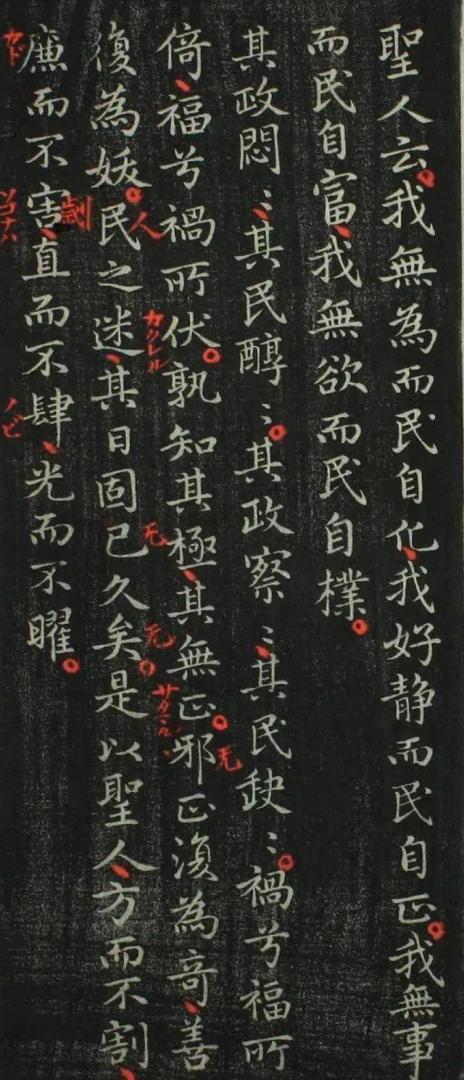 聖人云。我無為而民自化、我好静而民自正。我無事
而民自富、我無欲而民自樸。
其政悶〻、其民醇〻。其政察〻、其民缺〻。禍兮福所
无
倚、福兮禍所伏。孰知其極、其無正。邪正復為奇、善
カクレル
人
无
无
復為妖。民之迷、其日固已久矣。是以聖人、方而不割、
劌
廉而不害、直而不肆、光而不曜。
カド
ソコナハ
ノビ